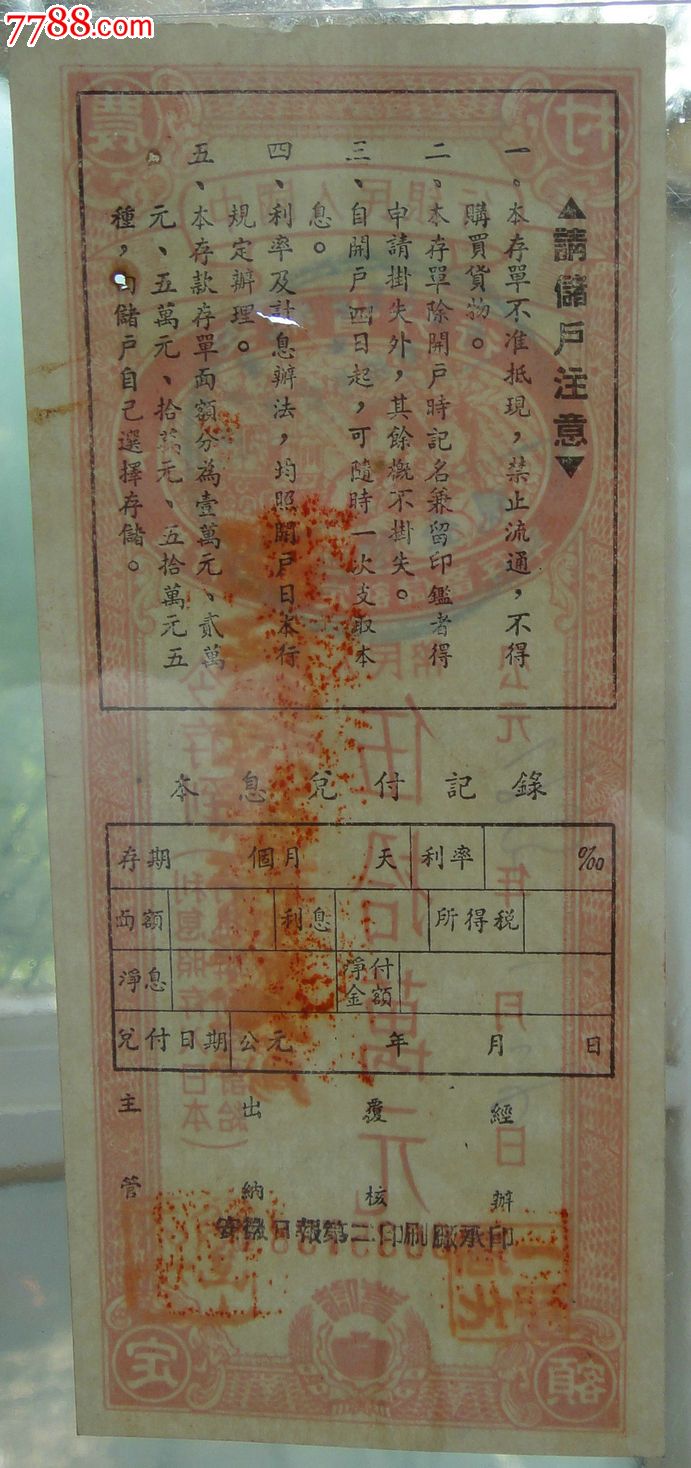 7788.com
中国收藏热线
▲請儲戶注意▼
一。本存單不准抵現，禁止流通，不得
購買貨物。
二、本存單除開戶時記名兼留印鑑者得
申請掛失外，其餘概不掛失。
三、自開戶四日起，可隨時一次支取本
息。
四、利率及計息辦法，均照開戶日本行
規定辦理。
五、本存款存單面額分為壹萬元、貳萬
元、五萬元、拾萬元、五拾萬元五
種，由儲戶自己選擇存儲。
本息兌付記錄
存期 個月 天 利率 ‰
面額 利息 所得税
淨息 淨付金額
兌付日期 公元 年 月 日
主管 出納 覆核 經辦
安徽日報第二印刷廠承印
農
村
定
額
公元 年 月 日
伍拾萬元